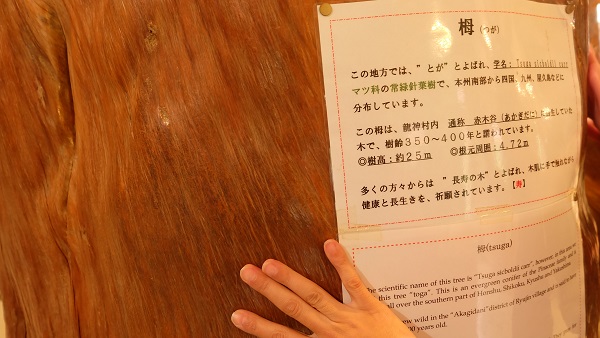 栂（つが）
この地方では、”とが”とよばれ、学名：Tsuga sieboldii carr
マツ科の常緑針葉樹で、本州南部から四国、九州、屋久島などに
分布しています。
この栂は、龍神村内　通称　赤木谷（あかぎだに）に自生していた
木で、樹齢３５０～４００年と謂われています。
◎樹高：約２５ｍ　◎根元周囲：４.７２ｍ
多くの方々からは“長寿の木”とよばれ、木肌に手で触れながら
健康と長生きを、祈願されています。【寿】
栂(tsuga)
The scientific name of this tree is "Tsuga sieboldii carr", however, in this area
this tree "toga". This is an evergreen conifer of the Pinaceae family and is
all over the southern part of Honshu, Shikoku, Kyushu and Yakushima.
ew wild in the "Akagidani" district of Ryujin village and is said to have
00 years old.